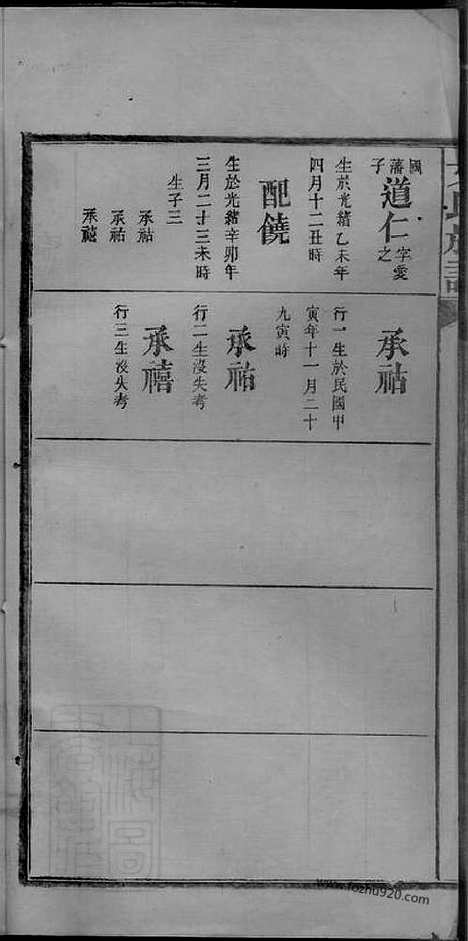 國藩子
道仁
字愛之
生於光緒乙未年
四月十二丑時
配饒
生於光緒辛卯年
三月二十三未時
生子三
承祜
承祐
承禧
承祜
行一生於民國甲
寅年十一月二十
九寅時
承祐
行二生沒失考
承禧
行三生沒失考
www.fozhu920.com